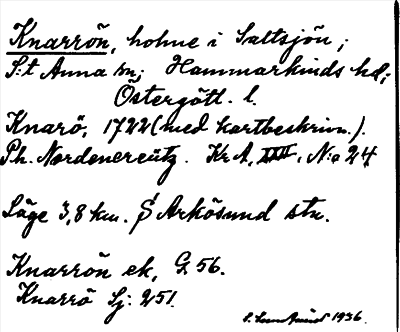 Knarrön, holme i Saltsjön;
S:t Anna sn; Hammarkinds hd;
Östergötl. l.
Knarö, 1722 (med kartbeskrivn.).
Ph. Nordenereütz. Kr. A, XXIII, N:o 24
Läge 3,8 km. S Arkösund stn.
Knarrön ek, G 56.
Knarrö Sj: 251.
1936.